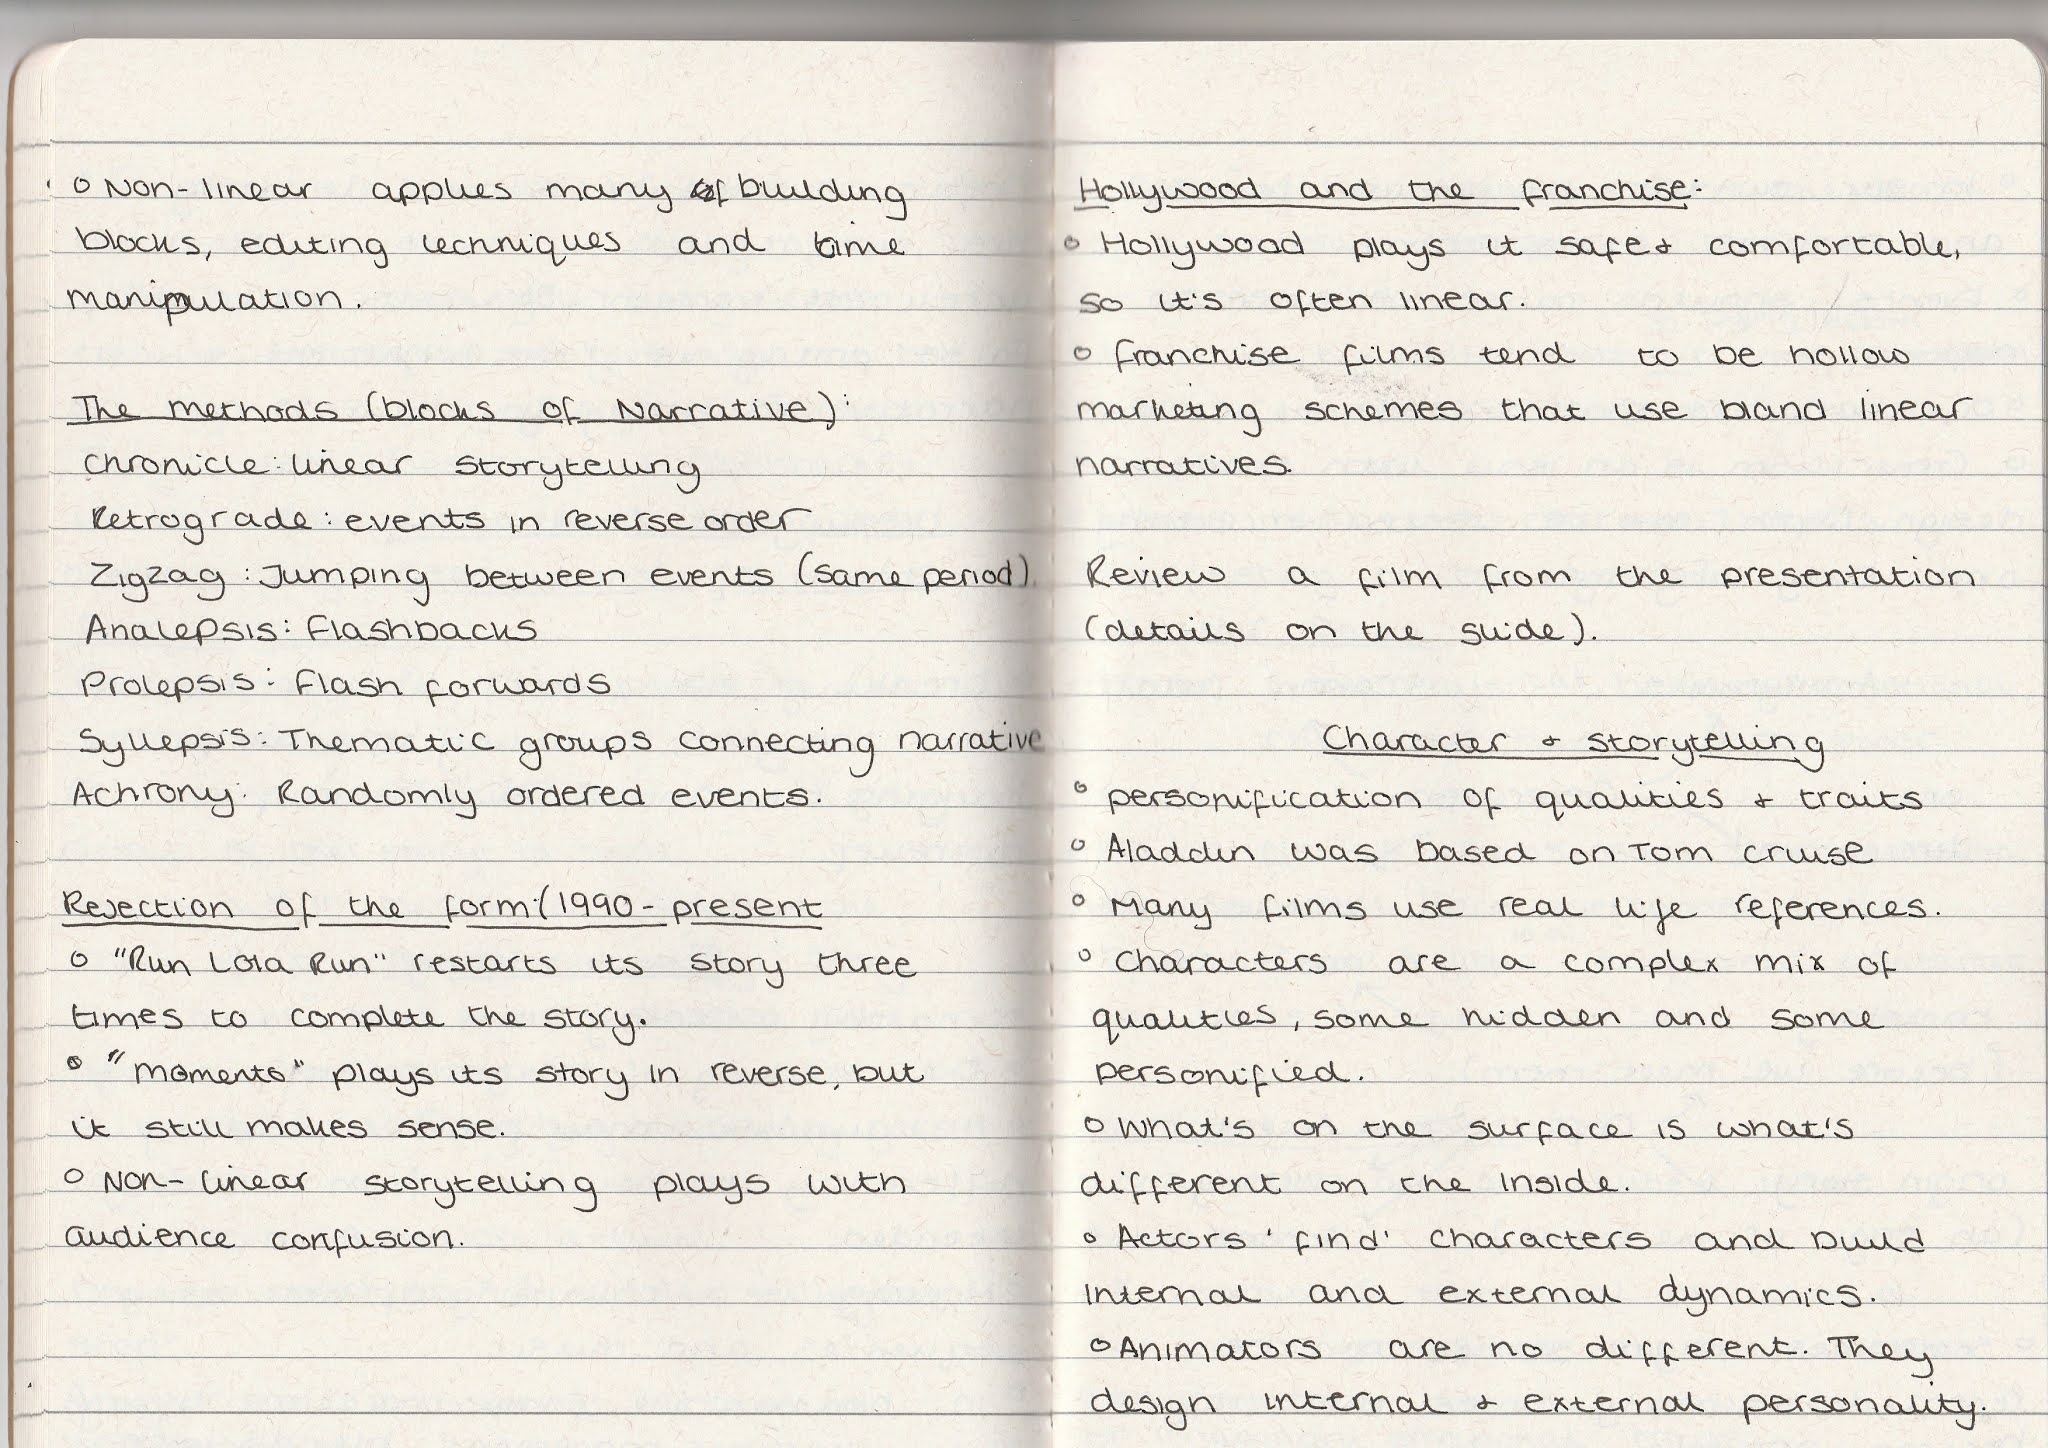 o Non-linear applies many of building
blocks, editing techniques and time
manipulation.
The methods (blocks of Narrative):
Chronicle: linear storytelling
Retrograde: events in reverse order
Zigzag: Jumping between events (same period).
Analepsis: Flashbacks
Prolepsis: Flash forwards
Syllepsis: Thematic groups connecting narrative
Achrony: Randomly ordered events.
Rejection of the form: (1990 - present
o "Run Lola Run" restarts its story three
times to complete the story.
o "moments" plays its story in reverse, but
it still makes sense.
o Non-linear storytelling plays with
audience confusion.
Hollywood and the franchise:
o Hollywood plays it safe & comfortable,
so it's often linear.
o franchise films tend to be hollow
marketing schemes that use bland linear
narratives.
Review a film from the presentation
(details on the slide).
Character & storytelling
o personification of qualities & traits
o Aladdin was based on Tom cruise
o Many films use real life references.
o Characters are a complex mix of
qualities, some hidden and some
personified.
o What's on the surface is what's
different on the inside.
o Actors 'find' characters and build
internal and external dynamics.
o Animators are no different. They
design internal & external personality.